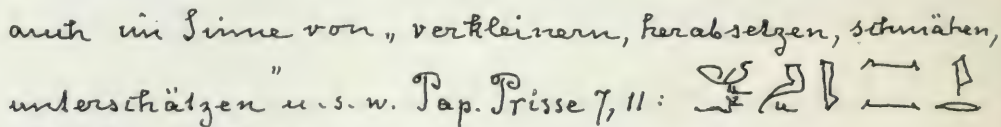 auch im Sinne von „verkleinern, herabsetzen, schmähen,
unterschätzen" u.s.w. Pap. Prisse 7, 11: